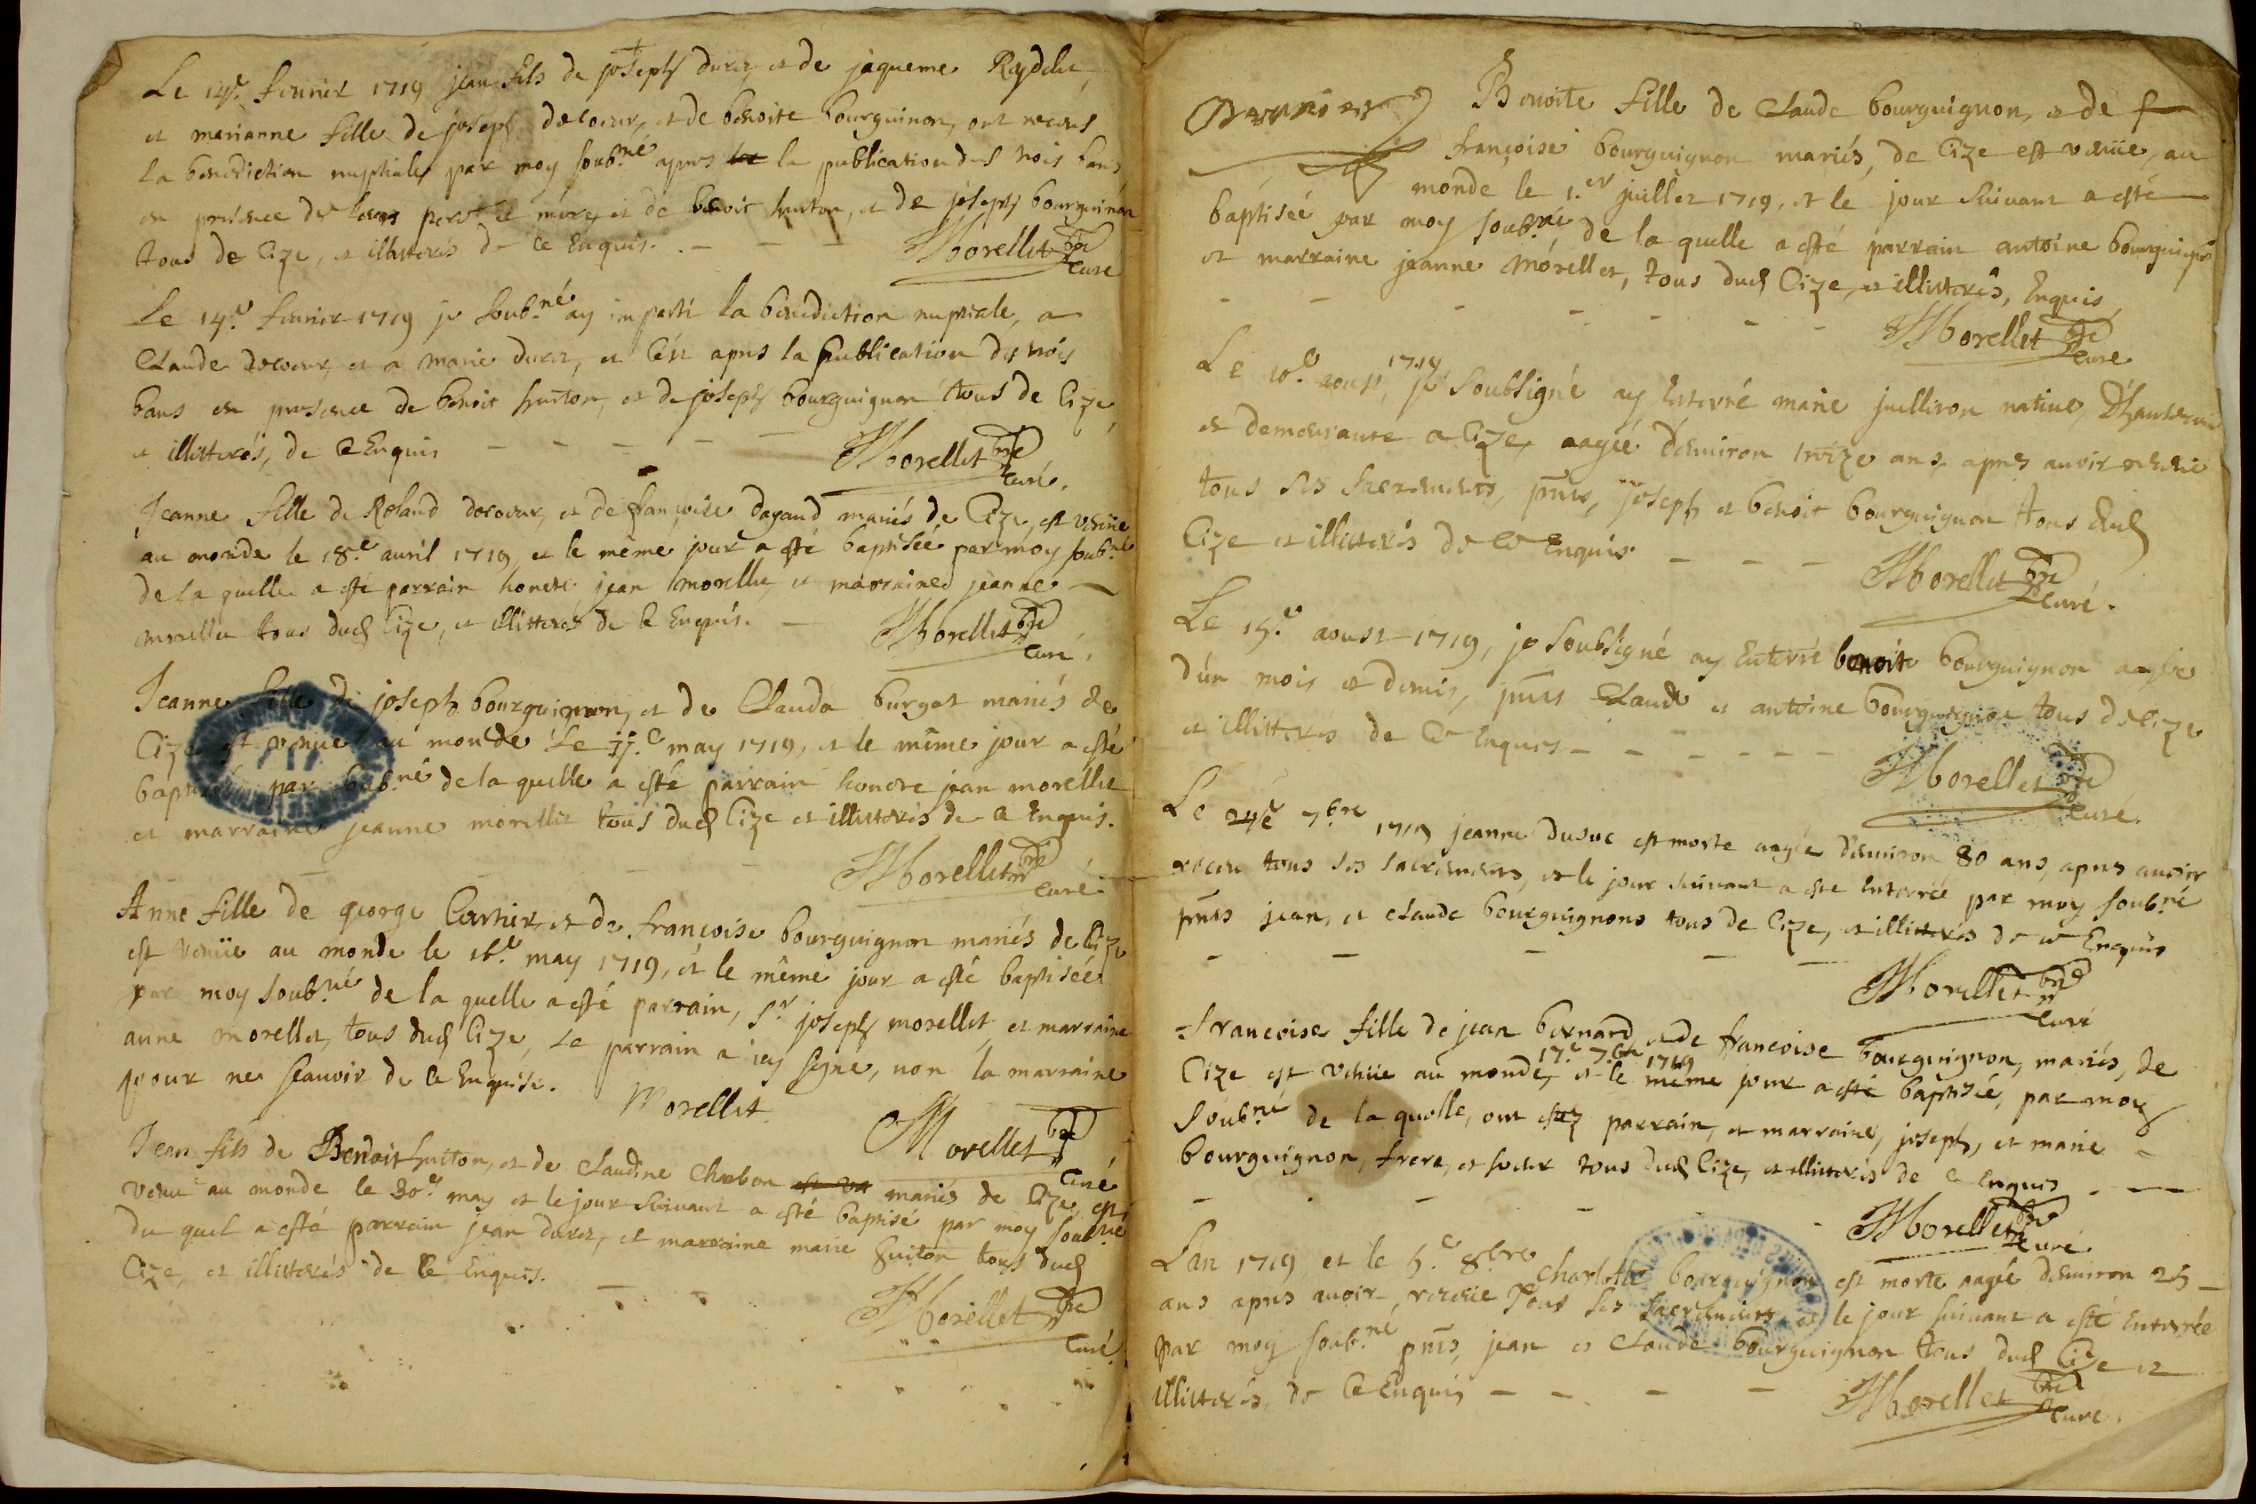 Le 14.e feuvrier 1719 jean fils de joseph durez et de jaqueme Reydelet,
et marianne fille de joseph decoeur, et de benoite bourguinon, ont receus
la benediction nuptiale par moy soub.né apres la publication des trois bans
en presence de leurs peres et meres et de benoit huiton, et de joseph bourguinon
tous de Cize, et illitterés de ce Enquis. - - -
Morellet pre
curé
Le 14.e feuvrier 1719 je soub.né ay imparti la benediction nuptiale, a
Claude decoeur, et a marie durez, et c'est apres la publication des trois
bans en presence de benoit huiton, et de joseph bourguignon tous de Cize,
et illitterés, de ce Enquis - - - - -
Morellet pre
curé.
Jeanne fille de Roland decoeur, et de françoise dagaud mariés de Cize, est venüe
au monde le 18.e avril 1719, et le même jour a esté baptisée par moy soub.né
de la quelle a esté parrain honete jean morellet, et marraine jeanne
morellet tous dud Cize, et illitterés de ce Enquis. -
Morellet pre
curé.
Jeanne fille de joseph bourguignon, et de Clauda burgat mariés de
Cize est venue au monde le may 1719, et le même jour a esté
baptisée par soub.né de la quelle a esté parrain honete jean morellet
et marraine jeanne morellet tous dud Cize et illitterés de ce Enquis.
Morellet pre
curé
Anne fille de george Cartier, et de françoise bourguignon mariés de Cize
est venüe au monde le 16.e may 1719, et le même jour a esté baptisée
par moy soub.né de la quelle a esté parrain, s.r joseph morellet, et marraine
anne morellet, tous dud Cize, Le parrain a icy signé, non la marraine
pour ne scavoir de ce Enquise.
Morellet
Morellet pre
Curé
Jean fils de Benoit huiton, et de claudine Charbon est ve mariés de Cize, est
venu au monde le 30.e may et le jour suivant a esté baptisé par moy soub.né
du quel a esté parrain jean durez, et marraine marie huiton tous dud
Cize, et illitterés de ce Enquis. - -
Morellet pre
Curé.
Benoite fille de Claude bourguignon, et de f
françoise bourguignon mariés, de Cize est venüe, au
monde le 1.er juillet 1719, et le jour suivant a esté
baptisée par moy soub.né, de la quelle a esté parrain antoine bourguignon
et marraine jeanne Morellet, tous dud Cize, et illitterés, Enquis
- - - - - -
Morellet pre
curé
Le 10.e aoust, 1719 je soubsigné ay Enterré marie juilliron native,
et demeurante a Cize, aagée d'environ treize ans apres avoir receüe
tous ses sacrements, pnts, joseph et benoit bourguignon tous dud
Cize et illitterés de ce Enquis. - - -
Morellet pre
curé.
Le 15.e aoust 1719, je soubsigné ay Enterré benoite bourguignon aagée
d'un mois et demis, pnts Claude et antoine bourguignon tous de Cize
et illitterés de ce Enquis - - - - - -
Morellet pre
curé.
Le 24e 7bre 1719 jeanne dusuc est morte aagée d'environ 80 ans, apres avoir
receu tous ses sacrements, et le jour suivant a este Enterrée par moy soub.né
pnts jean, et claude bourguignons tous de Cize, et illitterés de ce Enquis
- - - -
Morellet pre
curé
Francoise fille de jean bernard et de francoise bourguignon, mariés, de
Cize est venüe au monde, 17.e 7bre 1719 et le même jour a esté baptisée, par moy
soub.né de la quelle, ont esté parrain, et marraine, joseph, et marie -
bourguignon, frere, et soeur tous dud Cize, et illitterés de ce Enquis - -
- - - -
Morellet pre
curé
Lan 1719 et le 5.e 8bre Charlotte bourguignon est morte aagée d'environ 25
ans apres avoir, receüe tous ses sacrements, et le jour suivant a esté Enterrée
par moy soub.né pnts, jean et Claude bourguignon tous dud Cize et
illitterés, de ce Enquis - - - -
Morellet pre
curé.